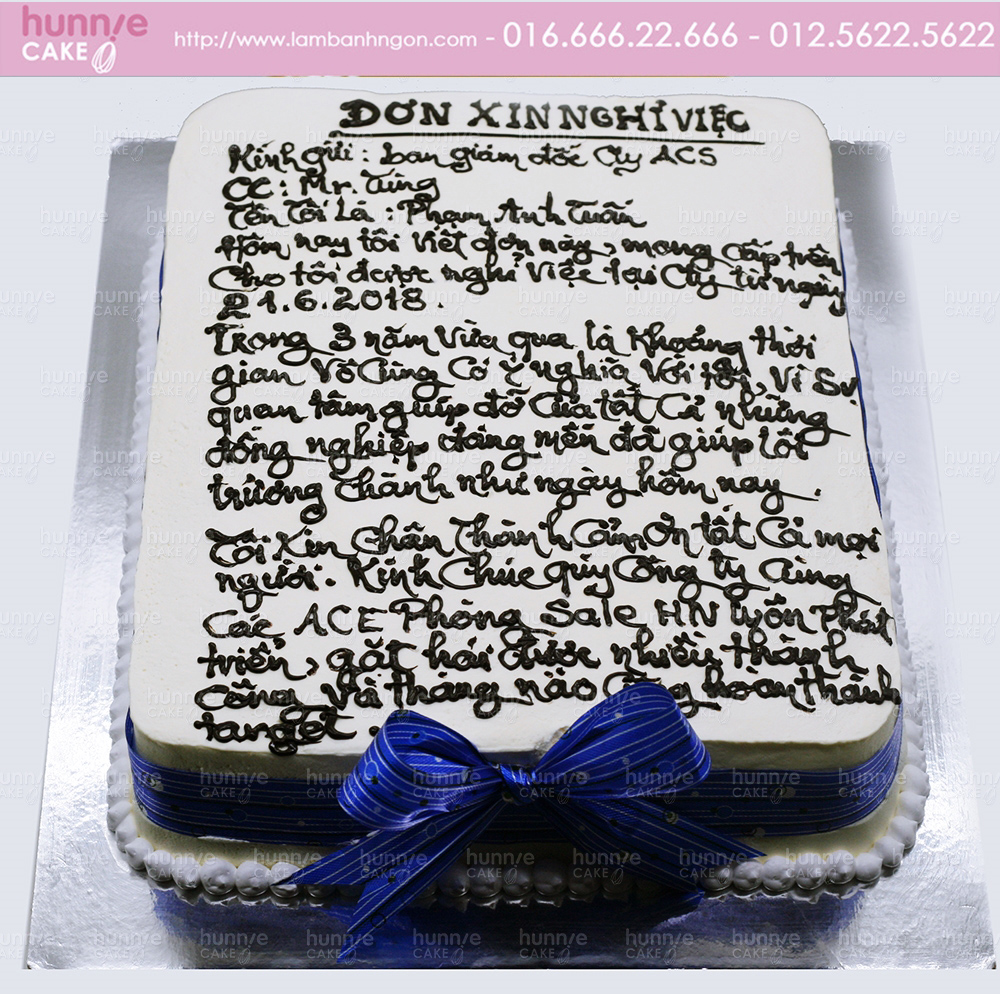 hunnie
CAKE
http://www.lambanhngon.com - 016.666.22.666 - 012.5622.5622
ĐƠN XIN NGHỈ VIỆC
Kính gửi : ban giám đốc Cty ACS
CC : Mr. Tùng
Tên Tôi Là : Phạm Anh Tuấn
Hôm nay tôi viết đơn này, mong cấp trên
Cho tôi được nghỉ việc tại Cty từ ngày
21.6.2018.
Trong 3 năm vừa qua là khoảng thời
gian Vô Cùng Có Ý nghĩa Với tôi, Vì Sự
quan tâm giúp đỡ Của tất Cả những
đồng nghiệp đáng mến đã giúp tôi
trưởng thành như ngày hôm nay.
Tôi Xin Chân Thành Cảm Ơn tất Cả mọi
người. Kính Chúc quý Công ty Cùng
Các ACE Phòng Sale HN luôn Phát
triển, gặt hái được nhiều thành
Công Và tháng nào Cũng hoàn thành
tanget.